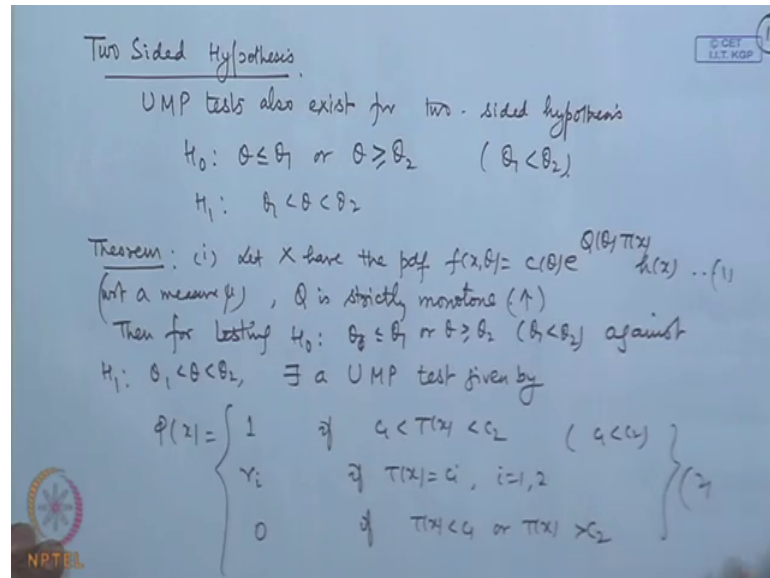 Two Sided Hypothesis.
© CET
I.I.T. KGP
UMP tests also exist for two-sided hypothesis
H₀: θ ≤ θ₁ or θ ≥ θ₂ (θ₁ < θ₂).
H₁: θ₁ < θ < θ₂
Theorem: (i) Let X have the pdf f(x,θ) = c(θ) e^{Q(θ) T(x)} h(x) ..(1)
(wrt a measure μ), Q is strictly monotone (↑)
Then for testing H₀: θ ≤ θ₁ or θ ≥ θ₂ (θ₁ < θ₂) against
H₁: θ₁ < θ < θ₂, ∃ a UMP test given by
φ(x) = { 1 if c₁ < T(x) < c₂ (c₁ < c₂)
γᵢ if T(x) = cᵢ, i=1,2 } (2
0 if T(x) < c₁ or T(x) > c₂
NPTEL